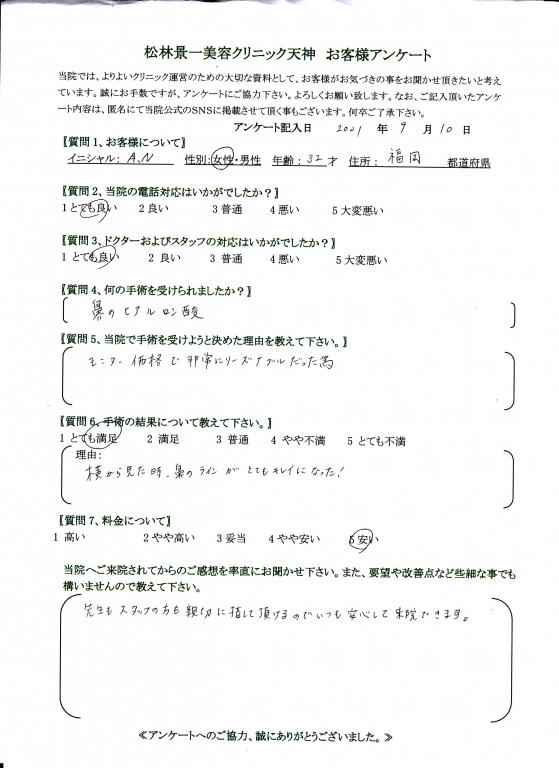 松林景一美容クリニック天神 お客様アンケート
当院では、よりよいクリニック運営のための大切な資料として、お客様がお気づきの事をお聞かせ頂きたいと考え
ています。誠にお手数ですが、アンケートにご協力下さい。よろしくお願い致します。なお、ご記入頂いたアンケ
ート内容は、匿名にて当院公式のSNSに掲載させて頂く事もございます。何卒ご了承下さい。
アンケート記入日 2021 年 9 月 10 日
【質問1、お客様について】
イニシャル: A.N 性別:女性・男性 年齢: 32 才 住所: 福岡 都道府県
【質問2、当院の電話対応はいかがでしたか?】
1 とても良い 2 良い 3 普通 4 悪い 5 大変悪い
【質問3、ドクターおよびスタッフの対応はいかがでしたか?】
1 とても良い 2 良い 3 普通 4 悪い 5 大変悪い
【質問4、何の手術を受けられましたか?】
鼻のヒアルロン酸
【質問5、当院で手術を受けようと決めた理由を教えて下さい。】
モニター価格で非常にリーズナブルだった為
【質問6、手術の結果について教えて下さい。】
1 とても満足 2 満足 3 普通 4 やや不満 5 とても不満
理由:
横から見た時、鼻のラインがとてもキレイになった!
【質問7、料金について】
1 高い 2 やや高い 3 妥当 4 やや安い 5 安い
当院へご来院されてからのご感想を率直にお聞かせ下さい。また、要望や改善点など些細な事でも
構いませんので教えて下さい。
先生もスタッフの方も親切に指して頂けるのでいつも安心して来院できます。
≪アンケートへのご協力、誠にありがとうございました。≫